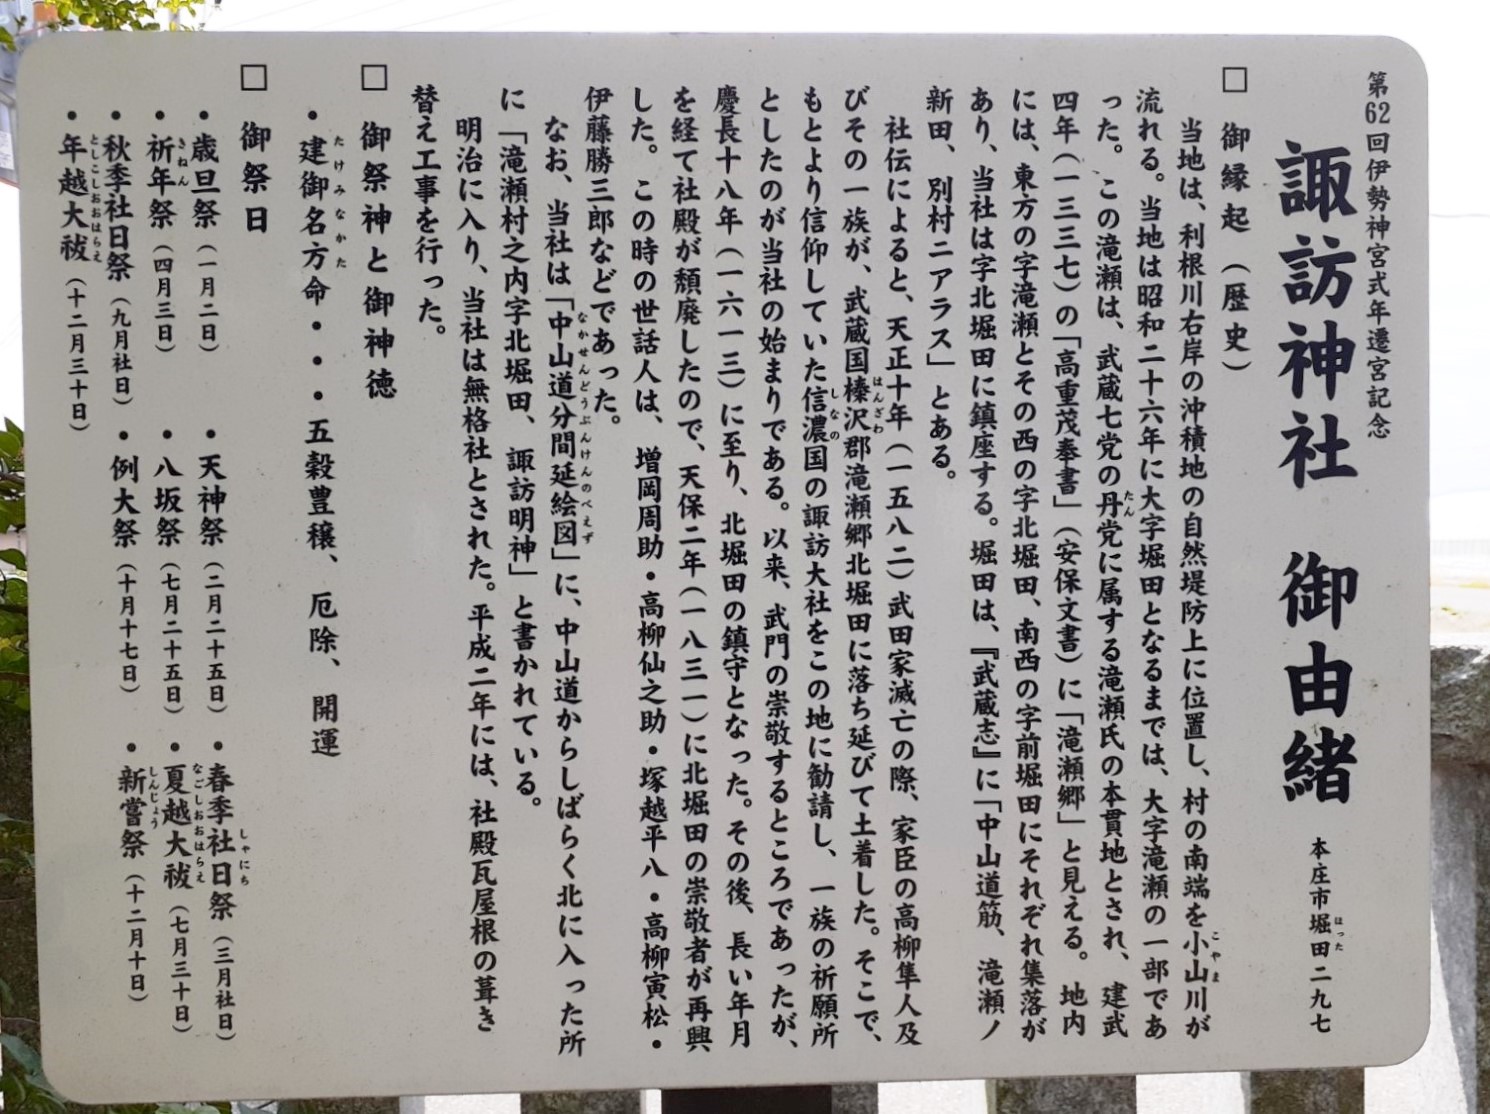 第62回伊勢神宮式年遷宮記念
諏訪神社　御由緒　本庄市堀田二九七
□　御縁起（歴史）
当地は、利根川右岸の沖積地の自然堤防上に位置し、村の南端を小山川が
流れる。当地は昭和二十六年に大字堀田となるまでは、大字滝瀬の一部であ
った。この滝瀬は、武蔵七党の丹党に属する滝瀬氏の本貫地とされ、建武
四年（一三三七）の「高重茂奉書」（安保文書）に「滝瀬郷」と見える。地内
には、東方の字滝瀬とその西の字北堀田、南西の字前堀田にそれぞれ集落が
あり、当社は字北堀田に鎮座する。堀田は、『武蔵志』に「中山道筋、滝瀬ノ
新田、別村ニアラス」とある。
社伝によると、天正十年（一五八二）武田家滅亡の際、家臣の高柳隼人及
びその一族が、武蔵国榛沢郡滝瀬郷北堀田に落ち延びて土着した。そこで、
もとより信仰していた信濃国の諏訪大社をこの地に勧請し、一族の祈願所
としたのが当社の始まりである。以来、武門の崇敬するところであったが、
慶長十八年（一六一三）に至り、北堀田の鎮守となった。その後、長い年月
を経て社殿が頽廃したので、天保二年（一八三一）に北堀田の崇敬者が再興
した。この時の世話人は、増岡周助・高柳仙之助・塚越平八・高柳寅松・
伊藤勝三郎などであった。
なお、当社は「中山道分間延絵図」に、中山道からしばらく北に入った所
に「滝瀬村之内字北堀田、諏訪明神」と書かれている。
明治に入り、当社は無格社とされた。平成二年には、社殿瓦屋根の葺き
替え工事を行った。
□　御祭神と御神徳
・建御名方命・・・五穀豊穣、厄除、開運
□　御祭日
・歳旦祭（一月二日）　・天神祭（二月二十五日）　・春季社日祭（三月社日）
・祈年祭（四月三日）　・八坂祭（七月二十五日）　・夏越大祓（七月三十日）
・秋季社日祭（九月社日）　・例大祭（十月十七日）　・新嘗祭（十二月十日）
・年越大祓（十二月三十日）